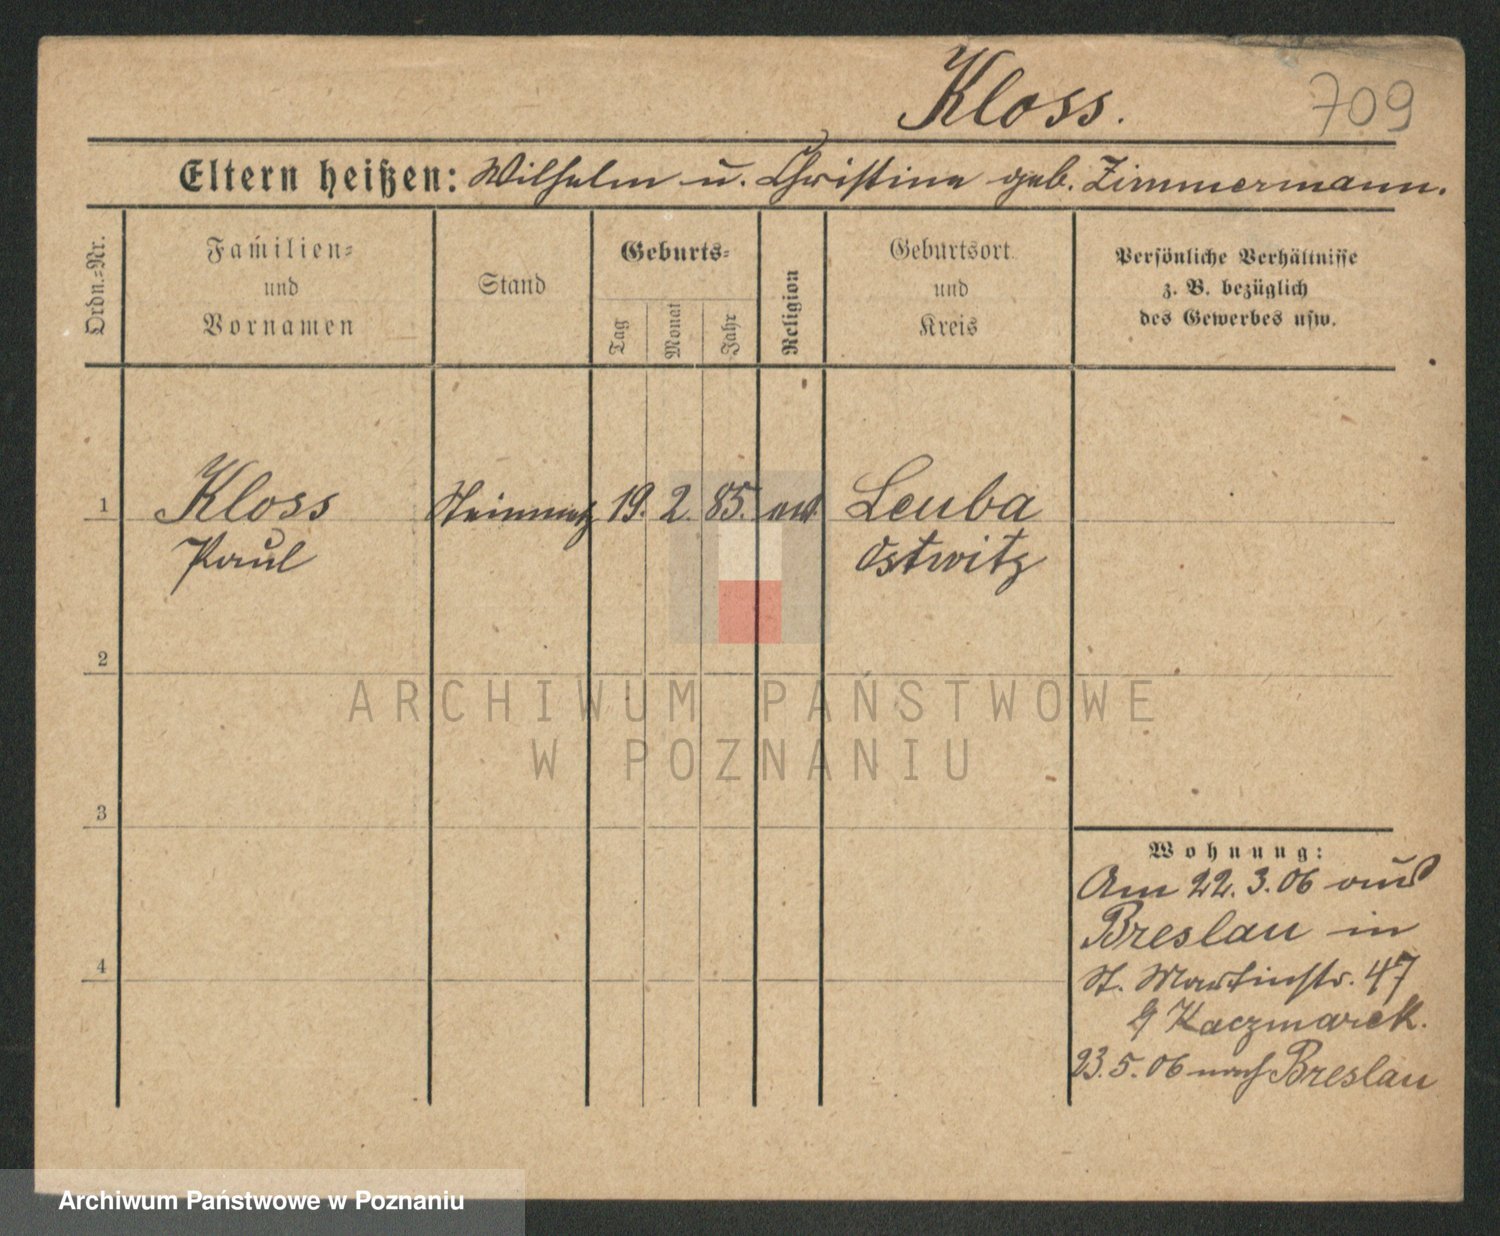 Kloss. 709
Eltern heißen: Wilhelm u. Christine geb. Zimmermann.
Ordn.=Nr.
Familien=
und
Vornamen
Stand
Geburts=
Tag
Monat
Jahr
Religion
Geburtsort
und
Kreis
Persönliche Verhältnisse
z. B. bezüglich
des Gewerbes usw.
1 Kloss Steinmetz 19. 2. 85. Leuba
Paul Ostwitz
2
3
4
Wohnung:
Am 22. 3. 06 aus
Breslau in
St. Martinstr. 47
Kaczmarek.
23. 5. 06 nach Breslau
ARCHIWUM PAŃSTWOWE
W POZNANIU
Archiwum Państwowe w Poznaniu